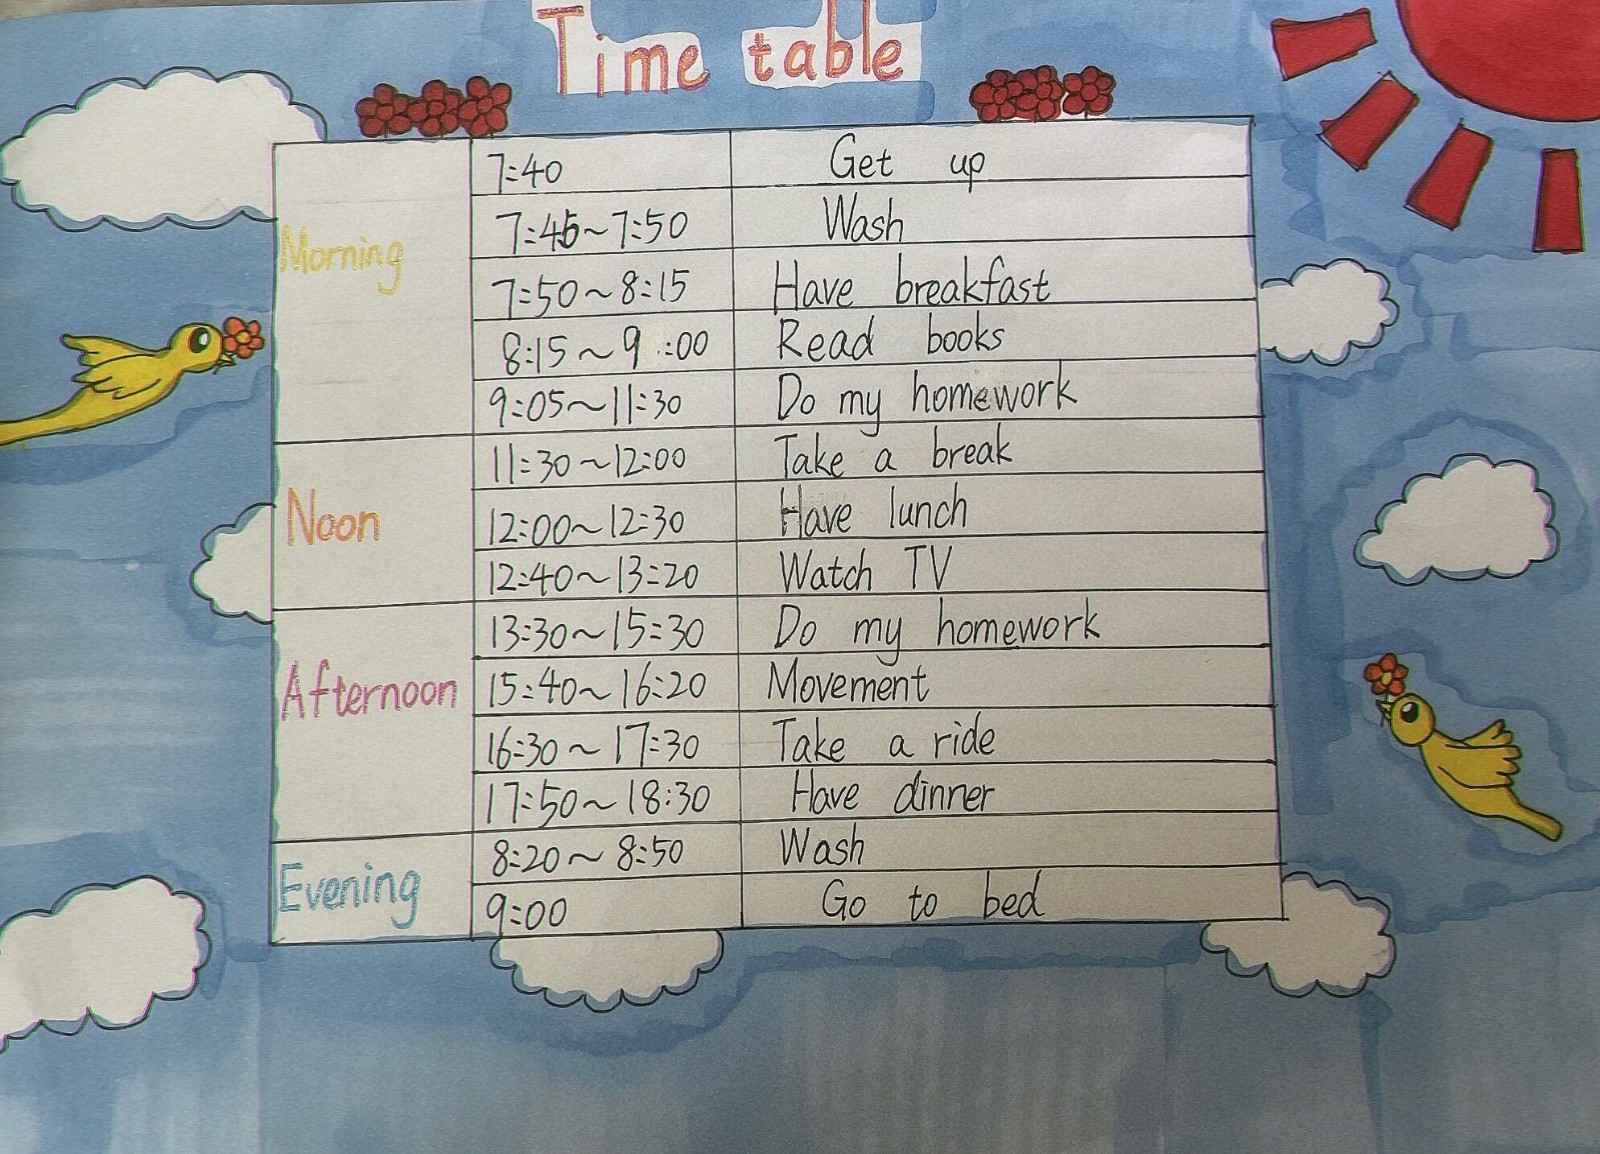 Time table
Morning
7:40 Get up
7:45~7:50 Wash
7:50~8:15 Have breakfast
8:15~9:00 Read books
9:05~11:30 Do my homework
Noon
11:30~12:00 Take a break
12:00~12:30 Have lunch
12:40~13:20 Watch TV
Afternoon
13:30~15:30 Do my homework
15:40~16:20 Movement
16:30~17:30 Take a ride
17:50~18:30 Have dinner
Evening
8:20~8:50 Wash
9:00 Go to bed